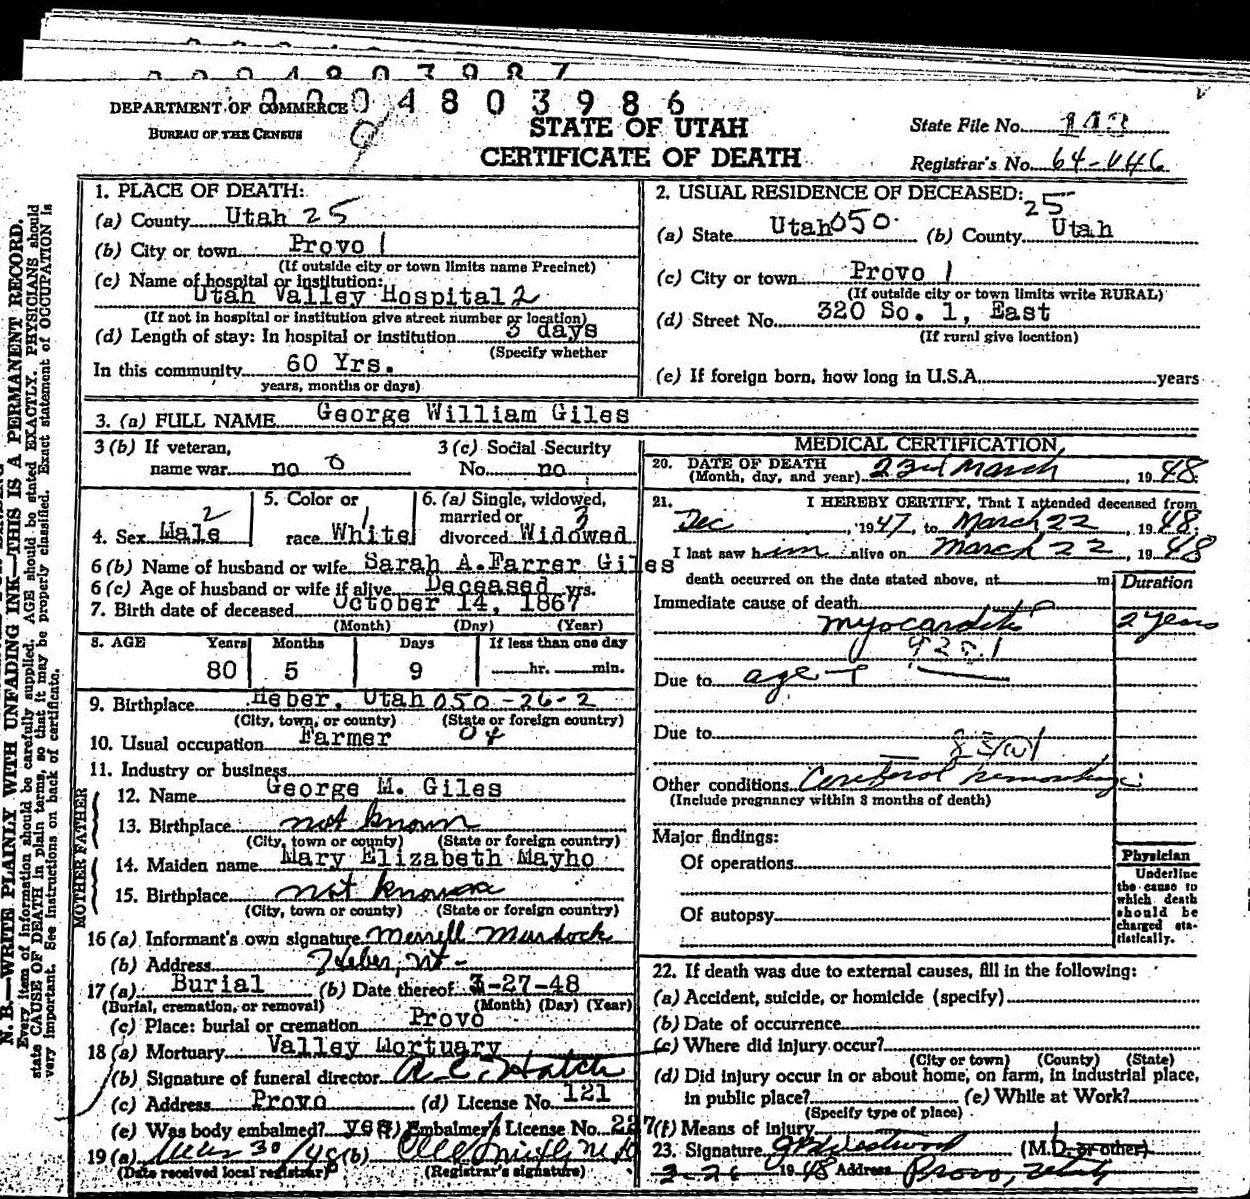 0 0 0 4 8 0 3 9 8 7
0 0 0 4 8 0 3 9 8 6
DEPARTMENT OF COMMERCE
BUREAU OF THE CENSUS
STATE OF UTAH
CERTIFICATE OF DEATH
State File No. 113
Registrar's No. 64-446
N. B.—WRITE PLAINLY WITH UNFADING INK—THIS IS A PERMANENT RECORD.
Every item of information should be carefully supplied. AGE should be stated EXACTLY. PHYSICIANS should
state CAUSE OF DEATH in plain terms, so that it may be properly classified. Exact statement of OCCUPATION is
very important. See instructions on back of certificate.
1. PLACE OF DEATH:
(a) County Utah 25
(b) City or town Provo 1
(If outside city or town limits name Precinct)
(c) Name of hospital or institution:
Utah Valley Hospital 2
(If not in hospital or institution give street number or location)
(d) Length of stay: In hospital or institution 3 days
(Specify whether
In this community 60 Yrs.
years, months or days)
2. USUAL RESIDENCE OF DECEASED:
25
(a) State Utah 050 (b) County Utah
(c) City or town Provo 1
(If outside city or town limits write RURAL)
(d) Street No. 320 So. 1, East
(If rural give location)
(e) If foreign born, how long in U.S.A. years
3. (a) FULL NAME George William Giles
3 (b) If veteran,
name war no 0
3 (c) Social Security
No. no
4. Sex Male 2
5. Color or
race White 1
6. (a) Single, widowed,
married or 3
divorced Widowed
6 (b) Name of husband or wife Sarah A. Farrer Giles
6 (c) Age of husband or wife if alive Deceased yrs.
7. Birth date of deceased October 14, 1867
(Month) (Day) (Year)
8. AGE Years Months Days If less than one day
80 5 9 hr. min.
9. Birthplace Heber, Utah 050-26-2
(City, town, or county) (State or foreign country)
10. Usual occupation Farmer 04
11. Industry or business
FATHER
12. Name George M. Giles
13. Birthplace not known
(City, town or county) (State or foreign country)
MOTHER
14. Maiden name Mary Elizabeth Mayho
15. Birthplace not known
(City, town or county) (State or foreign country)
16 (a) Informant's own signature Merrell Murdock
(b) Address Heber, Ut-
17 (a) Burial (b) Date thereof 3-27-48
(Burial, cremation, or removal) (Month) (Day) (Year)
(c) Place: burial or cremation Provo
18 (a) Mortuary Valley Mortuary
(b) Signature of funeral director A. E. Hatch
(c) Address Provo (d) License No. 121
(e) Was body embalmed? yes (f) Embalmer's License No. 227
19 (a) Mar 30/48 (b)
(Date received local registrar) (Registrar's signature)
MEDICAL CERTIFICATION
20. DATE OF DEATH
(Month, day, and year) 23rd March, 1948.
21. I HEREBY CERTIFY, That I attended deceased from
Dec, 1947, to March 22, 1948.
I last saw him alive on March 22, 1948
death occurred on the date stated above, at m
Duration
Immediate cause of death
myocarditis 2 years
Due to age
Due to
Other conditions Cerebral hemorrhage
(Include pregnancy within 3 months of death)
Major findings:
Of operations
Of autopsy
Physician
Underline
the cause to
which death
should be
charged sta-
tistically.
22. If death was due to external causes, fill in the following:
(a) Accident, suicide, or homicide (specify)
(b) Date of occurrence
(c) Where did injury occur?
(City or town) (County) (State)
(d) Did injury occur in or about home, on farm, in industrial place,
in public place? (e) While at Work?
(Specify type of place)
(f) Means of injury
23. Signature Westwood (M.D. or other)
3-26 1948 Address Provo, Utah